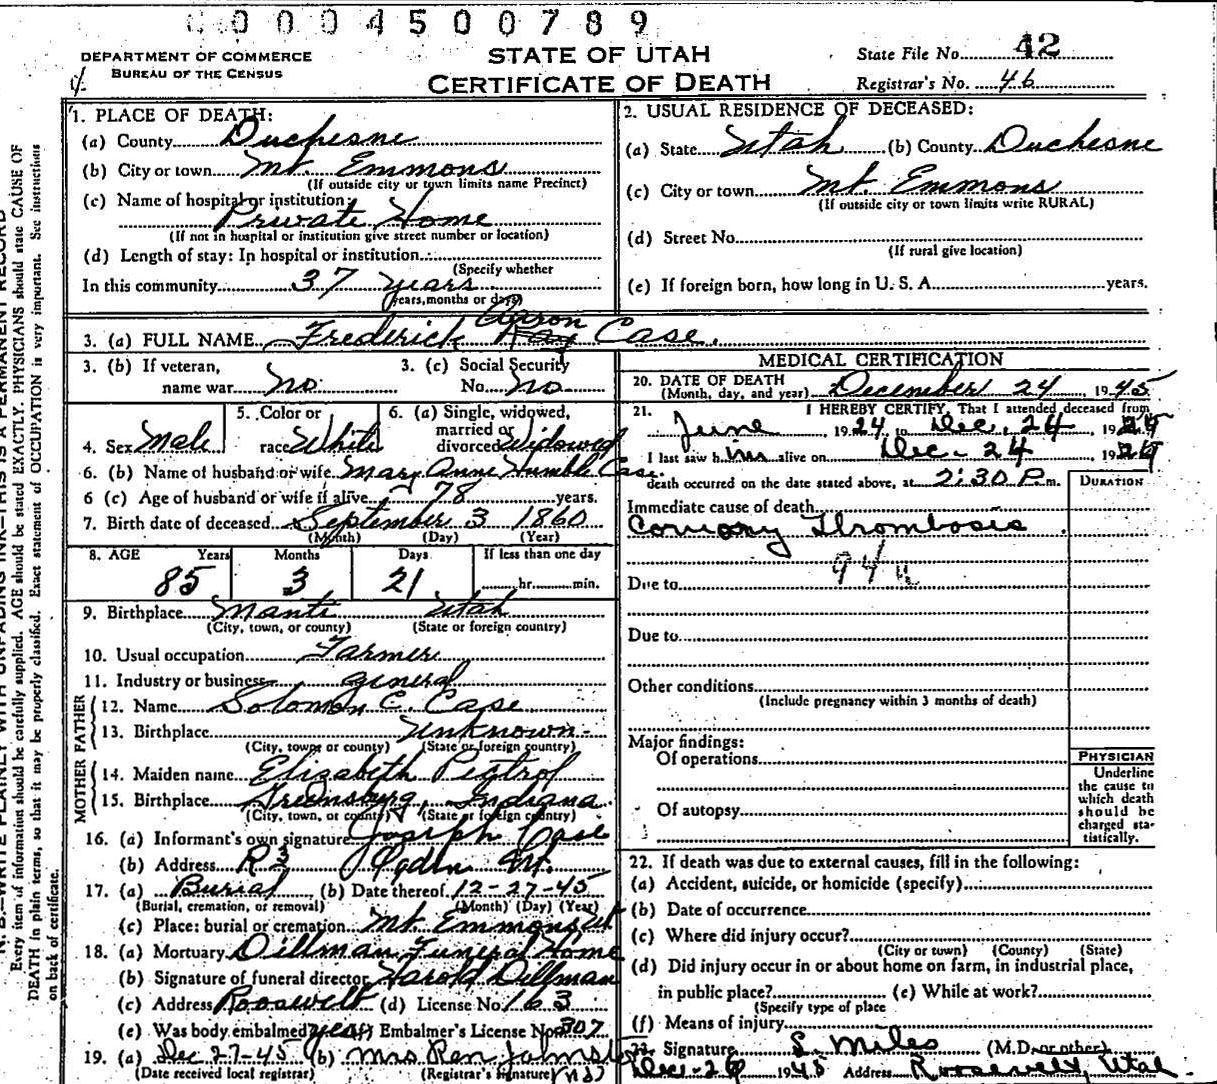 0004500789
DEPARTMENT OF COMMERCE
BUREAU OF THE CENSUS
STATE OF UTAH
CERTIFICATE OF DEATH
State File No. 42
Registrar's No. 46
1. PLACE OF DEATH:
(a) County Duchesne
(b) City or town Mt. Emmons
(If outside city or town limits name Precinct)
(c) Name of hospital or institution:
Private Home
(If not in hospital or institution give street number or location)
(d) Length of stay: In hospital or institution
(Specify whether
In this community 37 years
years, months or days)
2. USUAL RESIDENCE OF DECEASED:
(a) State Utah (b) County Duchesne
(c) City or town Mt. Emmons
(If outside city or town limits write RURAL)
(d) Street No.
(If rural give location)
(e) If foreign born, how long in U. S. A. years.
Aaron
3. (a) FULL NAME Frederick Ray Case.
3. (b) If veteran, 3. (c) Social Security
name war no No. no
5. Color or 6. (a) Single, widowed,
married or
4. Sex Male race White divorced Widowed
6. (b) Name of husband or wife Mary Anne Humble Case.
6 (c) Age of husband or wife if alive 78 years.
7. Birth date of deceased September 3 1860
(Month) (Day) (Year)
8. AGE Years Months Days If less than one day
85 3 21 hr. min.
9. Birthplace Manti Utah
(City, town, or county) (State or foreign country)
10. Usual occupation Farmer
11. Industry or business general
FATHER
12. Name Solomon C. Case
13. Birthplace Unknown
(City, town or county) (State or foreign country)
MOTHER
14. Maiden name Elizabeth
15. Birthplace Greensburg, Indiana
(City, town, or county) (State or foreign country)
16. (a) Informant's own signature Joseph Case
(b) Address R 3 Ogden Ut.
17. (a) Burial (b) Date thereof 12-27-45
(Burial, cremation, or removal) (Month) (Day) (Year)
(c) Place: burial or cremation Mt. Emmons Ut
18. (a) Mortuary Dillman Funeral Home
(b) Signature of funeral director Harold Dillman
(c) Address Roosevelt (d) License No. 163
(e) Was body embalmed yes (f) Embalmer's License No. 307
19. (a) Dec 27-45 (b) Mrs. Ren
(Date received local registrar) (Registrar's signature)
MEDICAL CERTIFICATION
20. DATE OF DEATH
(Month, day, and year) December 24, 1945
21. I HEREBY CERTIFY, That I attended deceased from
June 1924 to Dec. 24 19
I last saw him alive on Dec. 24 19
death occurred on the date stated above, at 2:30 P.m.
DURATION
Immediate cause of death
Coronary Thrombosis
94
Due to
Due to
Other conditions
(Include pregnancy within 3 months of death)
Major findings:
Of operations
Of autopsy
PHYSICIAN
Underline
the cause to
which death
should be
charged sta-
tistically.
22. If death was due to external causes, fill in the following:
(a) Accident, suicide, or homicide (specify)
(b) Date of occurrence
(c) Where did injury occur?
(City or town) (County) (State)
(d) Did injury occur in or about home on farm, in industrial place,
in public place? (e) While at work?
(Specify type of place
(f) Means of injury
23. Signature L. Miles (M.D. or other)
1945 Address Roosevelt, Utah
N. B.—WRITE PLAINLY WITH UNFADING INK—THIS IS A PERMANENT RECORD
Every item of information should be carefully supplied. AGE should be stated EXACTLY. PHYSICIANS should state CAUSE OF
DEATH in plain terms, so that it may be properly classified. Exact statement of OCCUPATION is very important. See instructions
on back of certificate.